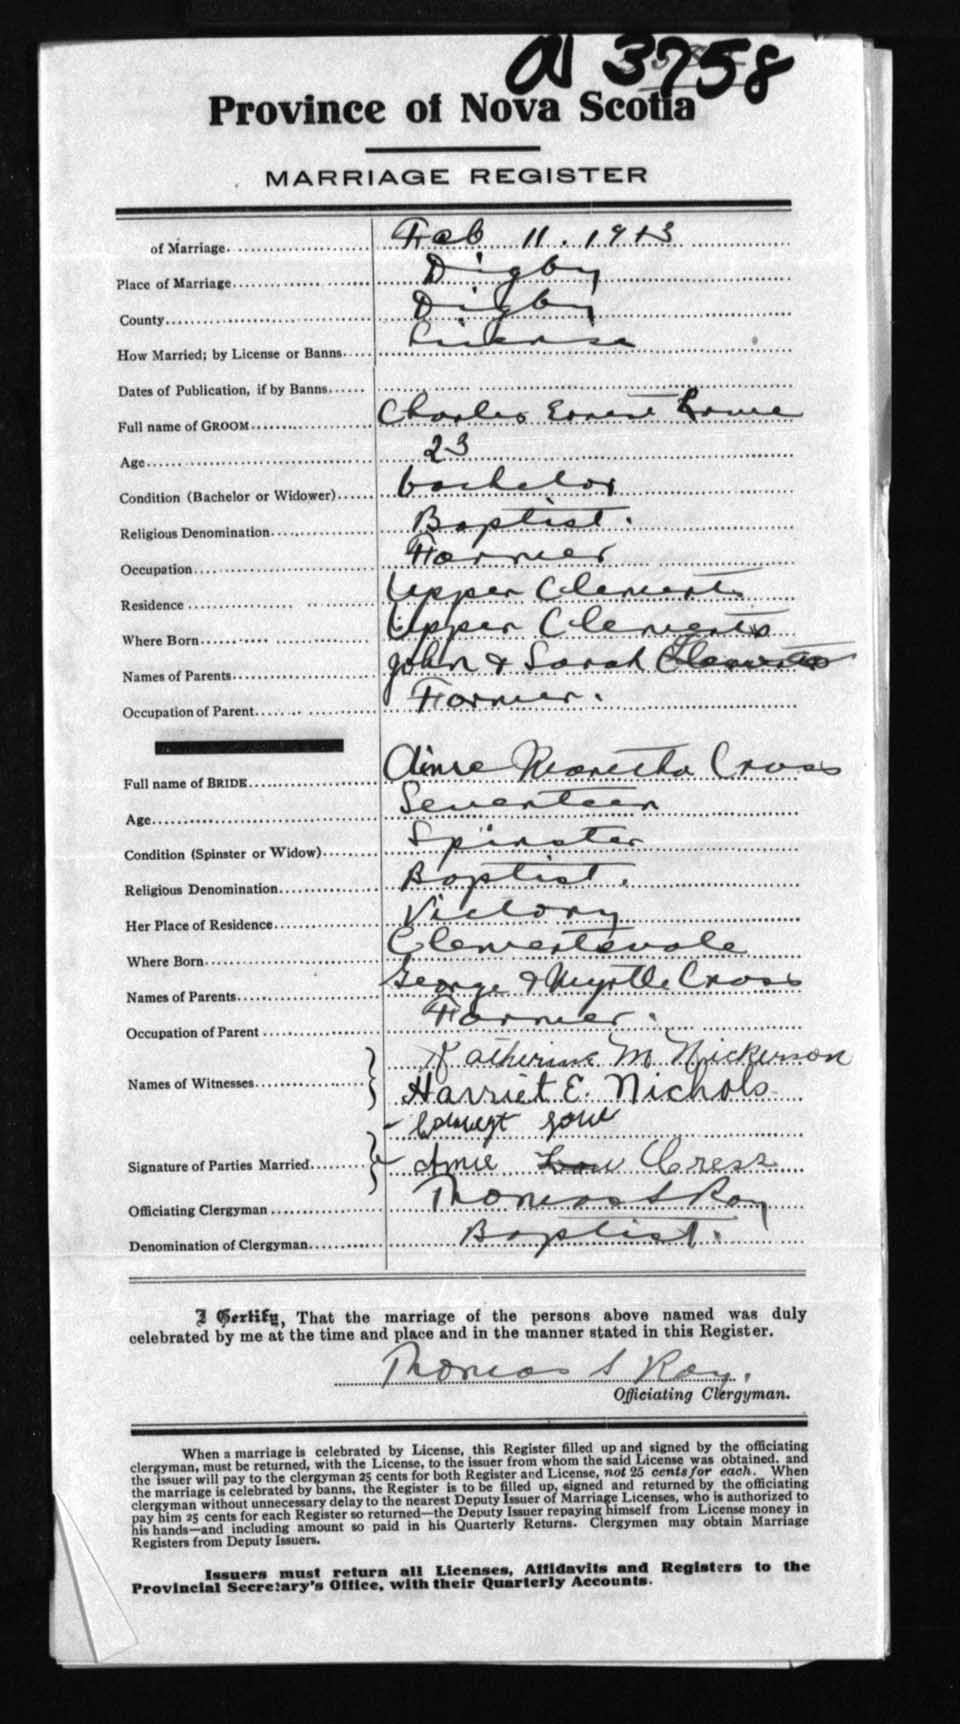 A 3758
Province of Nova Scotia
MARRIAGE REGISTER
of Marriage Feb 11. 1913
Place of Marriage Digby
County Digby
How Married; by License or Banns License
Dates of Publication, if by Banns
Full name of GROOM Charles Ernest
Age 23
Condition (Bachelor or Widower) bachelor
Religious Denomination Baptist.
Occupation Farmer
Residence Upper Clements
Where Born Upper Clements
Names of Parents John & Sarah
Occupation of Parent Farmer.
Full name of BRIDE Cross
Age Seventeen
Condition (Spinster or Widow) Spinster
Religious Denomination Baptist.
Her Place of Residence Victory
Where Born Clementsvale
Names of Parents George & Myrtle Cross
Occupation of Parent Farmer.
Katherine M Nickerson
Names of Witnesses Harriet E. Nichols
Signature of Parties Married Cress
Officiating Clergyman Thomas S Roy
Denomination of Clergyman Baptist.
I Certify, That the marriage of the persons above named was duly
celebrated by me at the time and place and in the manner stated in this Register.
Thomas S Roy.
Officiating Clergyman.
When a marriage is celebrated by License, this Register filled up and signed by the officiating
clergyman, must be returned, with the License, to the issuer from whom the said License was obtained, and
the issuer will pay to the clergyman 25 cents for both Register and License, not 25 cents for each. When
the marriage is celebrated by banns, the Register is to be filled up, signed and returned by the officiating
clergyman without unnecessary delay to the nearest Deputy Issuer of Marriage Licenses, who is authorized to
pay him 25 cents for each Register so returned—the Deputy Issuer repaying himself from License money in
his hands—and including amount so paid in his Quarterly Returns. Clergymen may obtain Marriage
Registers from Deputy Issuers.
Issuers must return all Licenses, Affidavits and Registers to the
Provincial Secretary's Office, with their Quarterly Accounts.